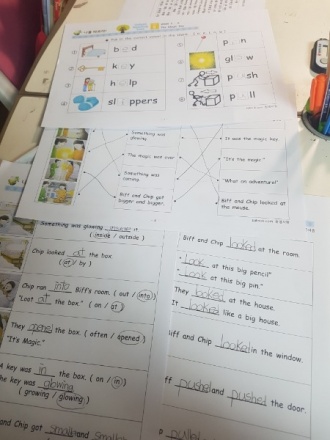 b e d
k e y
h e lp
sl i ppers
p e n
gl o w
p u sh
p u ll
Something was
glowing.
The magic was over.
Something was
coming.
Biff and Chip got
bigger and bigger.
It was the magic key.
"It's the magic."
"What an adventure!"
Biff and Chip looked at
the mouse.
Something was glowing inside it.
( inside / outside )
Chip looked at the box.
( at / by )
Chip ran into Biff's room. ( out / into )
"Look at the box." ( on / at )
They opened the box. ( often / opened )
"It's Magic."
A key was in the box. ( on / in )
The key was glowing.
( growing / glowing )
and Chip got smaller and smaller
Biff and Chip looked at the room.
"Look at this big pencil."
"Look at this big pin."
They looked at the house.
It looked like a big house.
Biff and Chip looked in the window.
pushed and pushed the door.
pulled